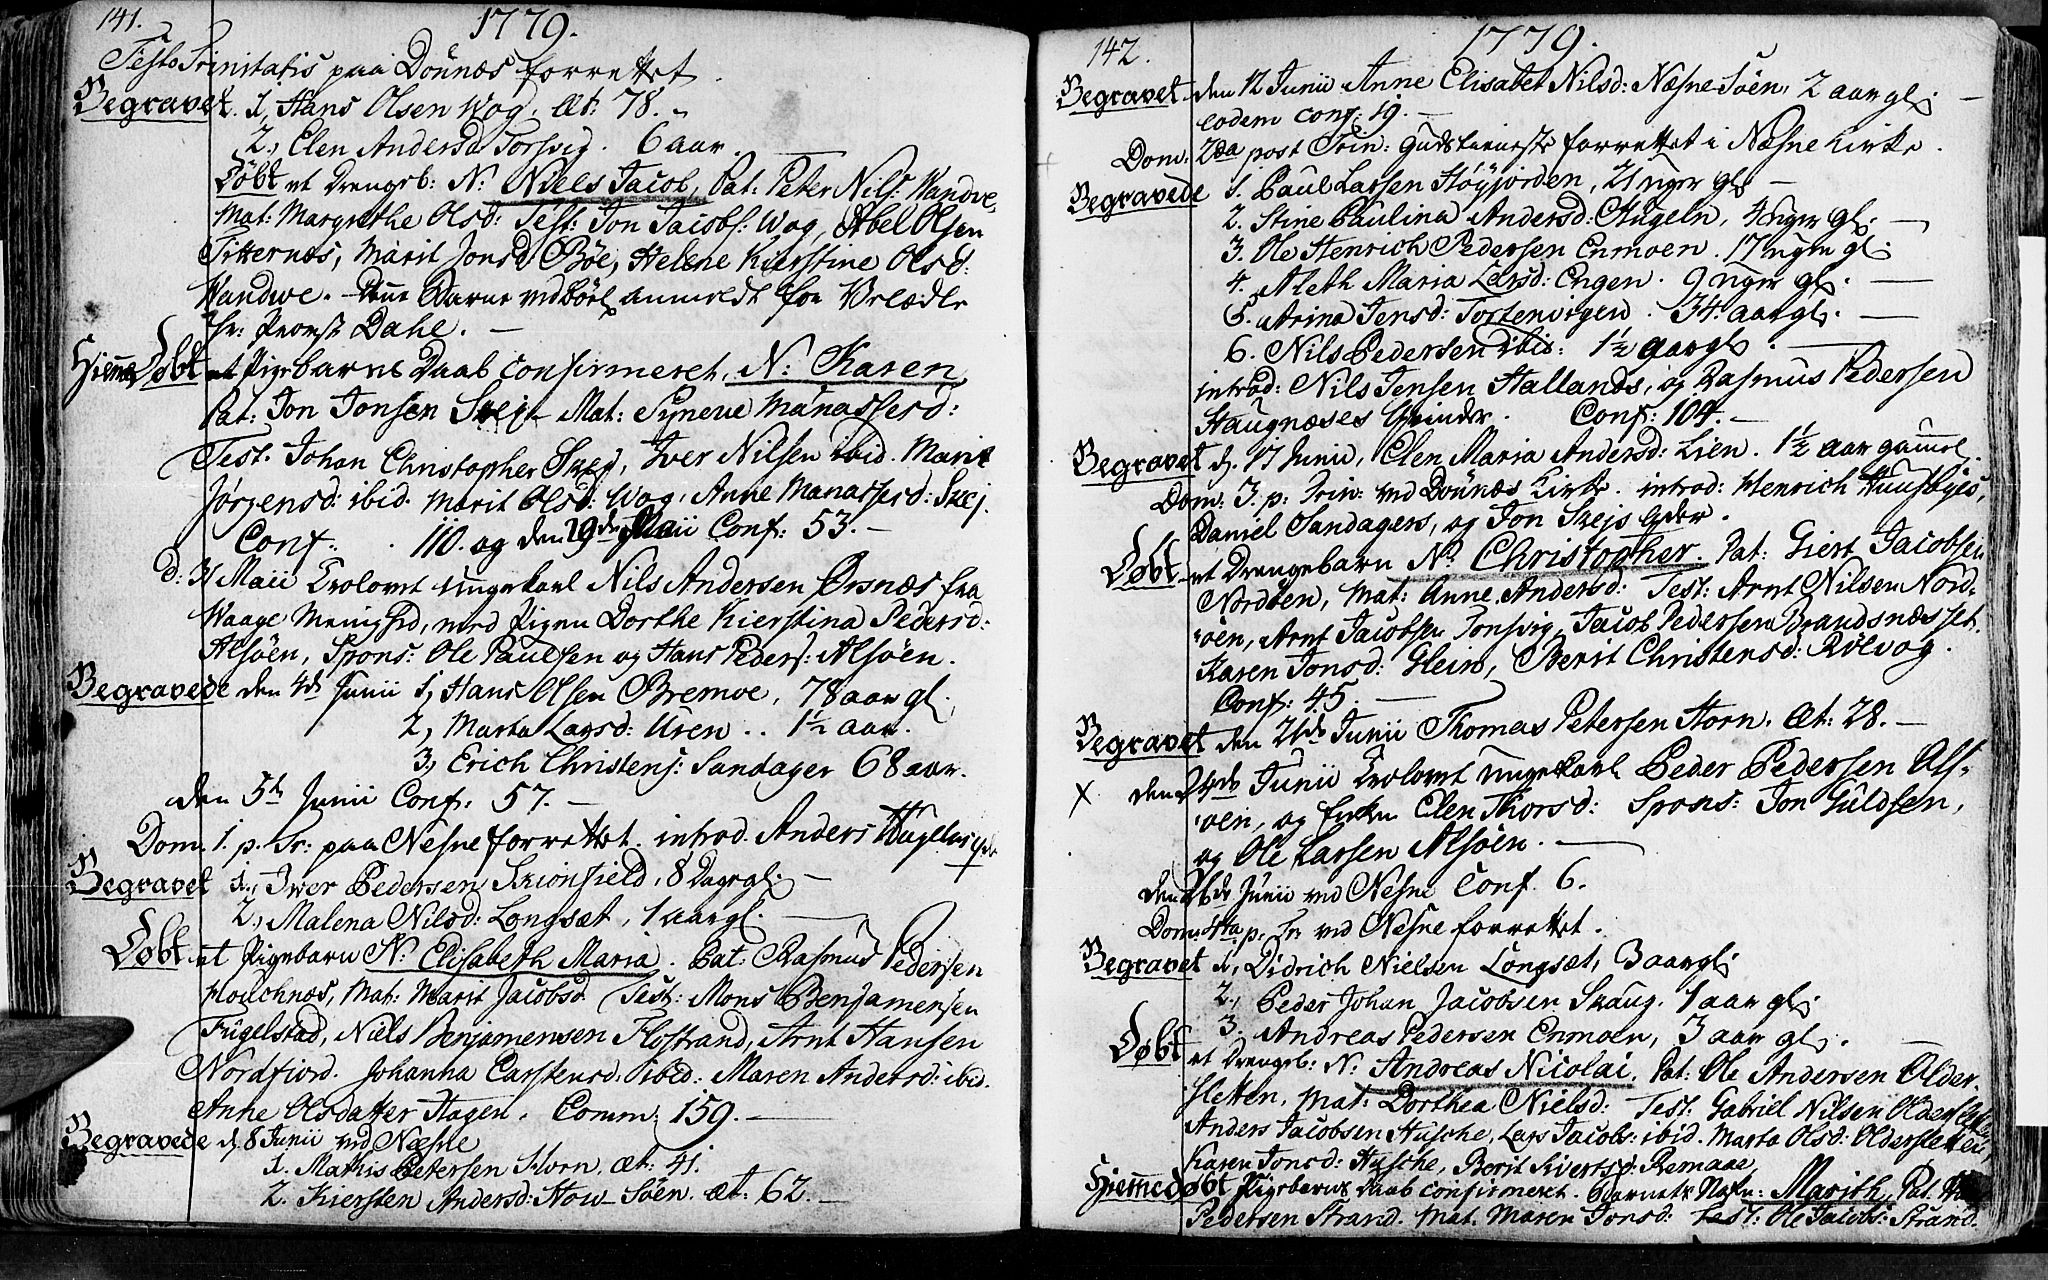 141.
1779.
Festo Trinitatis paa Dönnæs forrettet
Begravet. 1, Hans Olsen Wog, Æt: 78.
2, Elen Andersd Torsvig. 6 aar.
Døbt et Drengeb: N: Niels Jacob, Pat: Peter Nils: Wandve,
Mat: Margrethe Olsd: Test: Jon Jacobs: Wog, Abel Olsen
Titternæs, Marit Jonsd Bøe, Helene Kierstine Olsd:
Wandwe. Barne anmeldt for
Hr: Provst Dahl.
Hieme Døbt et Pigebarns Daab confirmeret, N: Karen,
Pat: Jon Jonsen Skej Mat: Syneve Manasserd:
Test. Johan Christopher Skej, Iver Nilsen ibid. Marit
Jørgensd: ibid. Marit Olsd: Wog, Anne Manasserd: Skej.
Conf: 110. og den 29de Maii Conf: 53.
d: 31 Maii Trolovet ungekarl Nils Andersen Ørsnæs fra
Waage Menighed, med Pigen Dorthe Kierstina Pedersd:
Alsöen, Spons: Ole Paulsen og Hans Peders: Alsöen.
Begravede den 4de Junii 1, Hans Olsen Bremve, 78 aar gl.
2, Marta Larsd: Uren.. 1½ aar.
3, Erich Christens: Sandager 68 aar.
den 5te Junii Conf: 57.
Dom. 1. p. Tr: paa Nesne forrettet. introd. Anders Hugelns qde
Begravet 1., Iwer Pedersen Skionfield, 8 Dage gl.
2, Malena Nilsd: Longsæt, 1 aar gl.
Døbt et Pigebarn N: Elisabeth Maria. Pat: Rasmus Pedersen
Houchnæs, Mat: Marit Jacobsd Test: Mons Benjamensen
Fugelstad, Niels Benjamensen Flostrand, Arnt Hansen
Nordfiord. Johanna Carstensd. ibid: Maren Andersd: ibid.
Anne Olsdatter Hagen. Comm: 159.
Begravede d, 8 Junii ved Næsne
1. Mathis Petersen Horn, æt: 41.
2. Kiersten Andersd: How-Söen. æt: 62.
142.
1779.
Begravet den 12 Junii Anne Elisabet Nilsd: Næsne Söen, 2 aar gl:
eodem conf: 19.
Dom: 2da post Trin: Gudstieneste forrettet i Næsne Kirke.
Begravede 1. Paul Larsen Høyjorden, 21 uger gl
2. Stine Paulina Andersd: Hugeln, 4 uger gl.
3. Ole Henrich Pedersen Enmoen. 17 ugen gl:
4. Aleth Maria Larsd: Engen. 9 uger gl.
5. Arina Jensd: Tortenvigen. 34 aar gl.
6. Nils Pedersen ibid: 1½ aar gl.
introd: Nils Jensen Hallands, og Rasmus Pedersen
Haugnæses Qvinder. Conf: 104.
Begravet d. 17 Junii, Elen Maria Andersd: Lien. 1½ aar gamel.
Dom: 3. p: Trin: ved Dönnæs Kirke. introd: Henrich Huusbyes,
Daniel Sandagers, og Jon Skejs qder.
Døbt et Drengebarn N: Christopher. Pat: Giert Jacobsen
Nordöen, Mat: Anne Andersd: Test: Arnt Nilsen Nord-
öen, Arnt Jacobsen Tonsvig, Jacob Pedersen Brandsnæsset.
Karen Jonsd: Glein, Berit Christensd: Rölvog.
Conf: 45.
Begravet den 21de Junii Thomas Petersen Horn. Æt: 28.
X den 24de Junii Trolovet ungekarl Peder Pedersen Als-
öen, og Elen Thorsd: Spons: Jon Guldsen,
og Ole Larsen Alsöen.
den 26de Junii ved Nesne Conf. 6.
Dom: 4ta p. Tr: ved Nesne forrettet.
Begravet 1, Didrich Nielsen Longsæt, 3 aar gl:
2., Peder Johan Jacobsen Skaug. 1 aar gl:
3. Andreas Pedersen Enmoen, 3 aar gl:
Døbt et Drengeb: N: Andreas Nicolai. Pat: Ole Andersen Older-
sletten, Mat: Dorthea Nielsd: Test: Gabriel Nilsen Oldersletten
Anders Jacobsen Husche, Lars Jacobs: ibid. Marta Olsd: Oldersletten,
Karen Jonsd: Husche, Berit Sivertsd: Remaae,
Hiemedøbt Pigebarns Daab confirmeret. Barnets Nafn: Marith, Pat:
Pedersen Strand. Mat. Maren Jonsd: Test: Ole Jacobs: Strand.